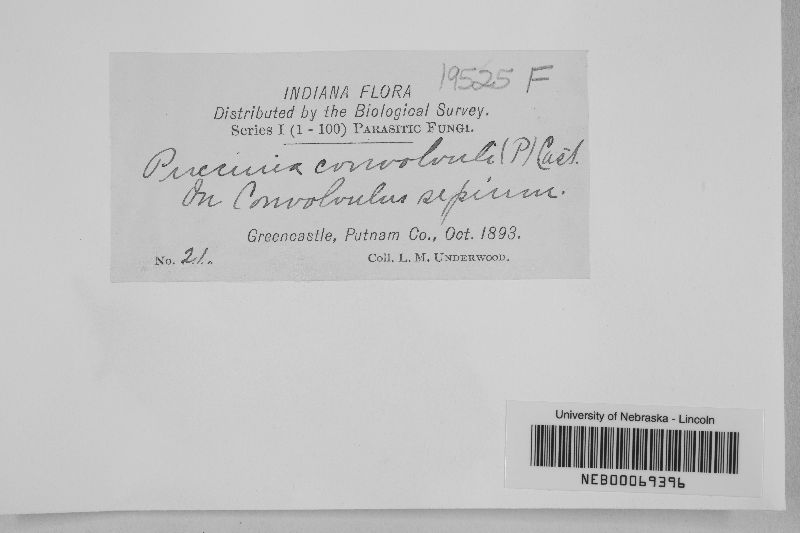 19525 F
INDIANA FLORA
Distributed by the Biological Survey.
Series I (1 - 100) PARASITIC FUNGI.
Puccinia convolvuli (P) Cast.
On Convolvulus sepium.
Greencastle, Putnam Co., Oct. 1893.
No. 21. Coll. L. M. UNDERWOOD.
University of Nebraska - Lincoln
NEB00069396